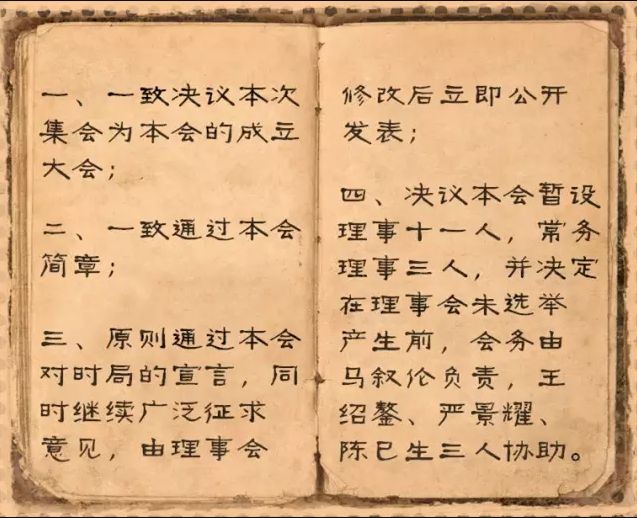 一、一致决议本次
集会为本会的成立
大会；
二、一致通过本会
简章；
三、原则通过本会
对时局的宣言，同
时继续广泛征求
意见，由理事会
修改后立即公开
发表；
四、决议本会暂设
理事十一人，常务
理事三人，并决定
在理事会未选举
产生前，会务由
马叙伦负责，王
绍鏊、严景耀、
陈巳生三人协助。